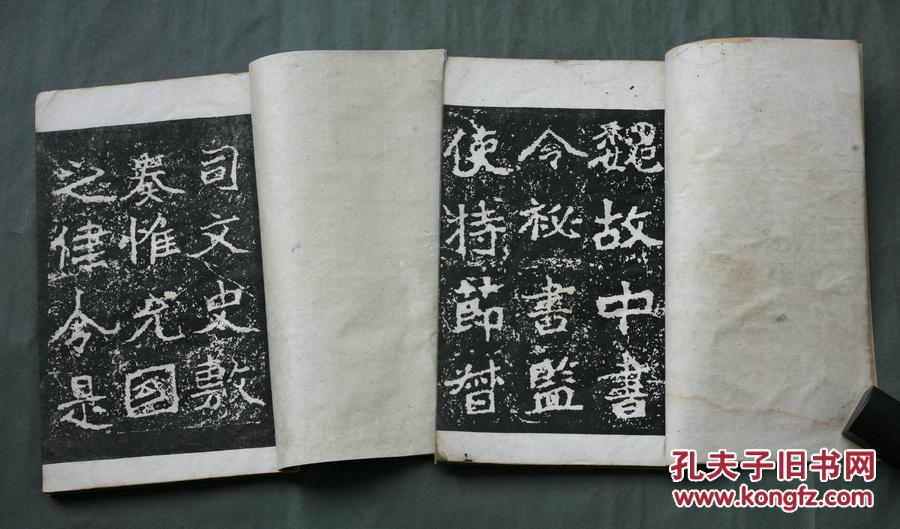 魏故中書
令祕書監
使持節督
司文史敷
奏惟允國
之律令是
孔夫子旧书网
www.kongfz.com